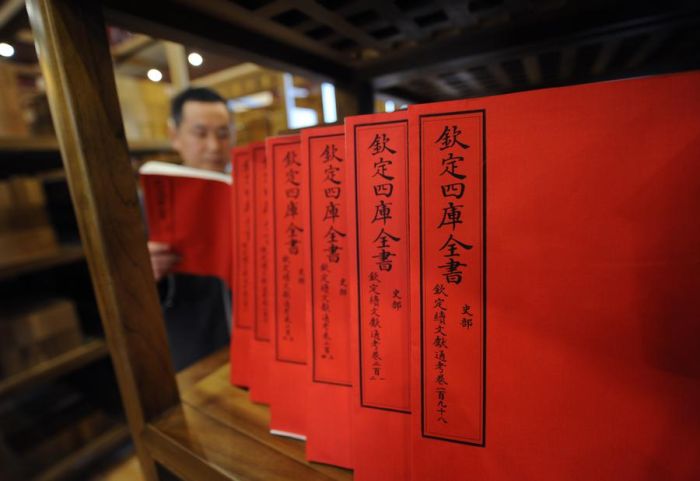 欽定四庫全書
史部
欽定續文獻通考卷一百九十八
欽定四庫全書
史部
欽定續文獻通考卷二百
欽定四庫全書
史部
欽定續文獻通考卷二百
欽定四庫全書
史部
欽定續文獻通考卷